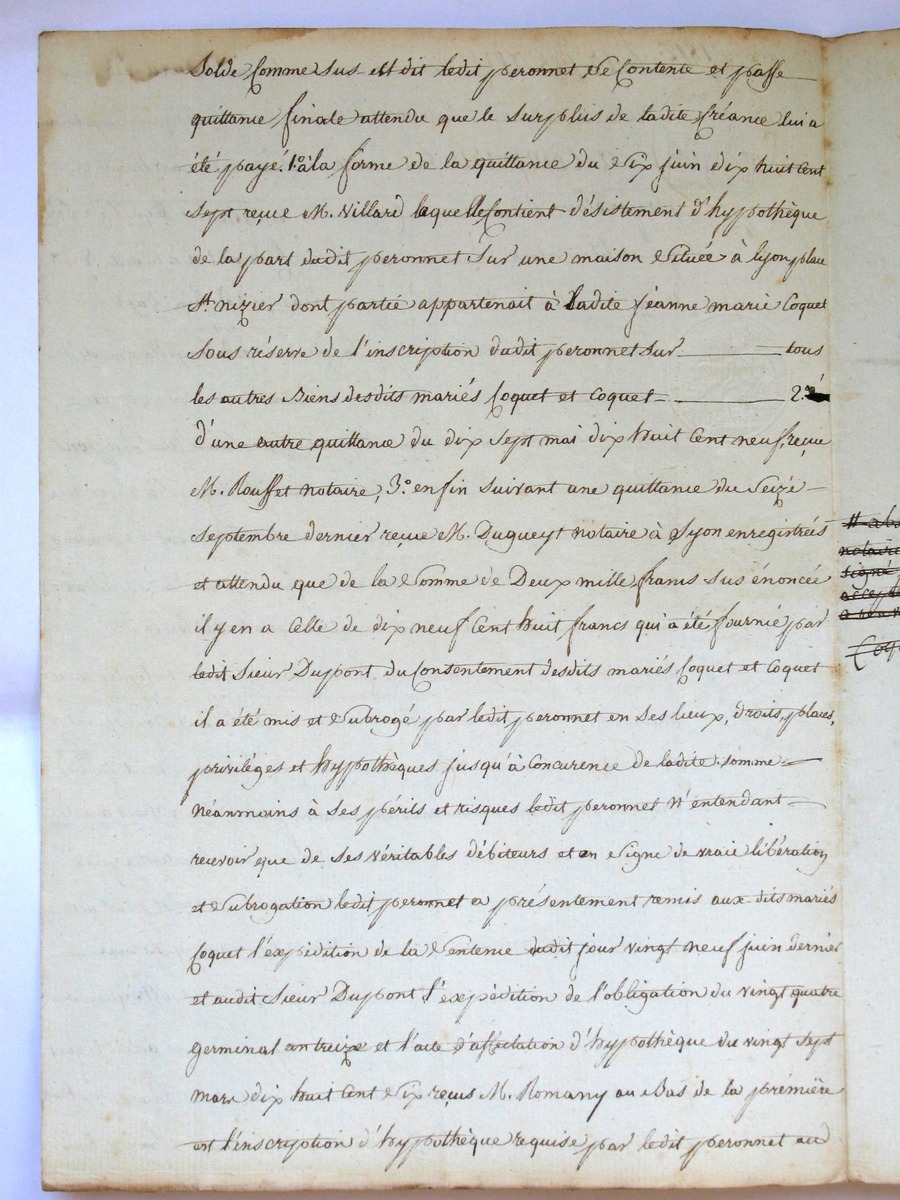 Solde Comme Sus est dit ledit peronnet se Contente et passe
quittance finale attendu que le Surplus de ladite Créance lui a
été payé. 1.° à la forme de la quittance du Six juin dix huit Cent
Sept reçue M. Villard laquelle Contient désistement d'hypothèque
de la part dudit peronnet Sur une maison Située à lyon place
St. nizier dont partie appartenait à Ladite jeanne marie Coquet
sous réserve de l'inscription dudit peronnet Sur tous
les autres Biens desdits mariés Coquet et Coquet 2.°
d'une autre quittance du dix Sept mai dix huit Cent neuf reçue
M. Rousset notaire, 3.° enfin Suivant une quittance du Seize
Septembre dernier reçue M. Dugueyt notaire à Lyon enregistrées
et attendu que de la Somme de Deux mille francs Sus énoncée
il y en a Celle de dix neuf Cent huit francs qui a été fournie par
ledit Sieur Dupont du Consentement desdits mariés Coquet et Coquet
il a été mis et Subrogé par ledit peronnet en Ses lieux, droits, places,
privilèges et hypothèques jusqu'à Concurence de ladite Somme
Néanmoins à Ses périls et risques ledit peronnet N'entendant
recevoir que de Ses véritables débiteurs et en Signe de vraie libération
et Subrogation ledit peronnet a présentement remis aux dits mariés
Coquet l'expédition de la Sentence dudit jour vingt neuf juin dernier
et audit Sieur Dupont l'expédition de l'obligation du vingt quatre
germinal an treize et l'acte d'affectation d'hypothèque du vingt Sept
mars dix huit Cent Six reçus M. Romany au Bas de la première
est l'inscription d'hypothèque requise par ledit peronnet au
notaire
signé